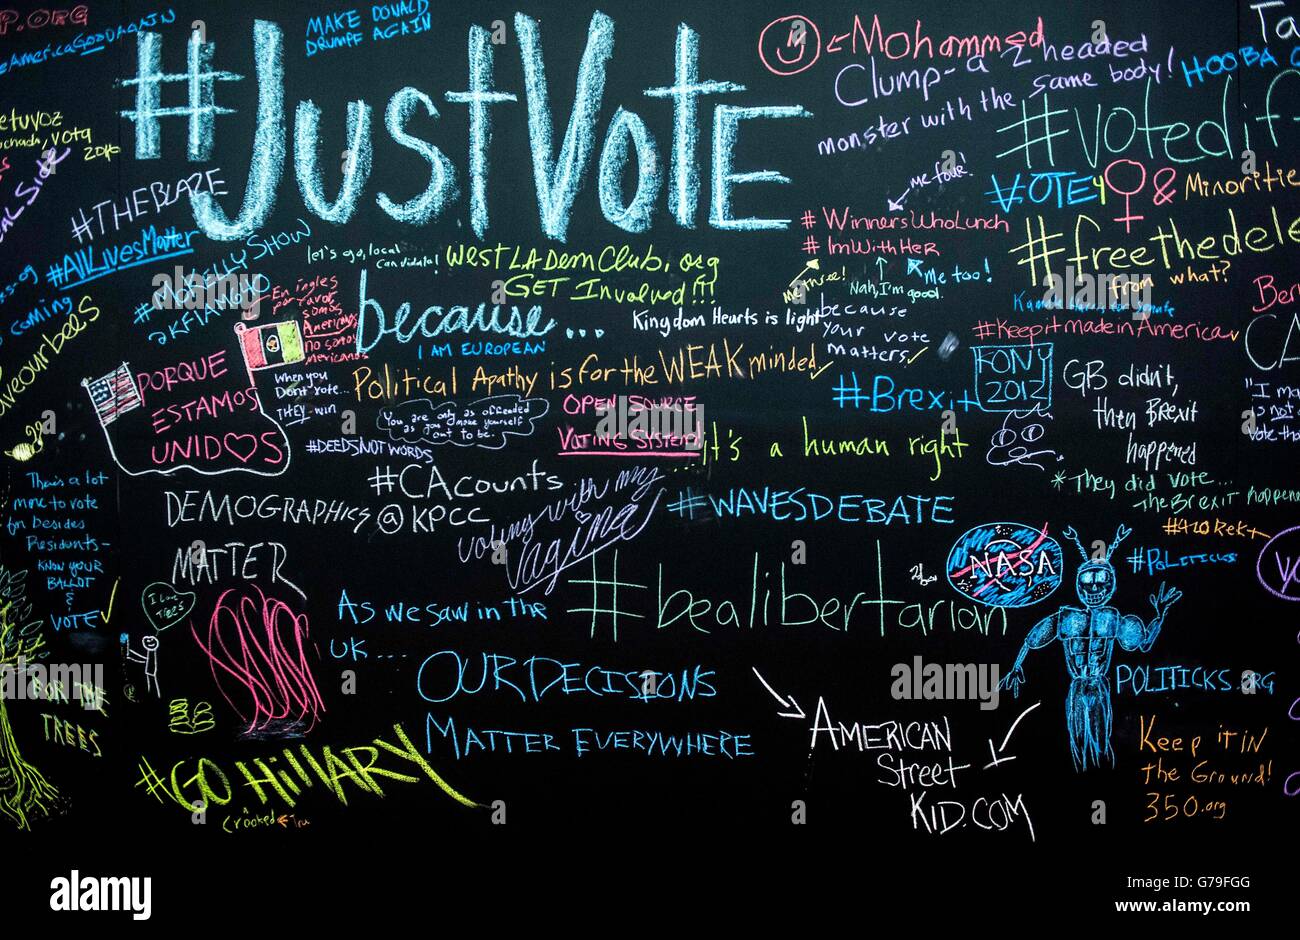 P.ORG
#JustVote
MAKE DONALD
DRUMPF AGAIN
Mohammed
Clump- a 2 headed
monster with the same body!
HOOBA
Ta
vota
2016
Side
#THEBLAZE
#AllLivesMatter
coming
#McKELLYSHOW
@KFIAM640
let's go, local
candidate!
WEST LA DEM CLUB.org
GET Involved!!!
me four!
#WinnersWhoLunch
#ImWithHer
me three!
Nah, I'm good.
Me too!
#votedif
VOTE 4 ♀ & Minoritie
#freethedele
from what?
#KeepitmadeinAmerica
Ber
CA
En ingles
por favor
somos
Americanos
no somos
mericanos
because...
I AM EUROPEAN
Kingdom Hearts is light
because
your vote
matters
PORQUE
ESTAMOS
UNIDOS
When you
Dont vote...
THEY win
Political Apathy is for the WEAK minded
#Brexit
FONY
2012
GB didn't,
then Brexit
happened
*They did vote...
The BREXIT happen
#420Rekt
You are only as offended
as you make yourself
out to be.
OPEN SOURCE
VOTING SYSTEM!
#DEEDSNOTWORDS
...it's a human right
#CAcounts
DEMOGRAPHICS @ KPCC
MATTER
voting with my
vagina
#WAVESDEBATE
"I ma
is not
vote tha
Theirs a lot
more to vote
for Besides
Presidents-
KNOW YOUR
BALLOT
&
VOTE
I Love
TREES
NASA
#POLITICKS
As we saw in the
UK....
#bealibertarian
OUR DECISIONS
MATTER EVERYWHERE
POLITICKS.ORG
FOR THE
TREES
#GO HillARY
Crooked
AMERICAN
Street
KID.COM
Keep it IN
the Ground!
350.org
alamy stock photo
G79FGG
www.alamy.com